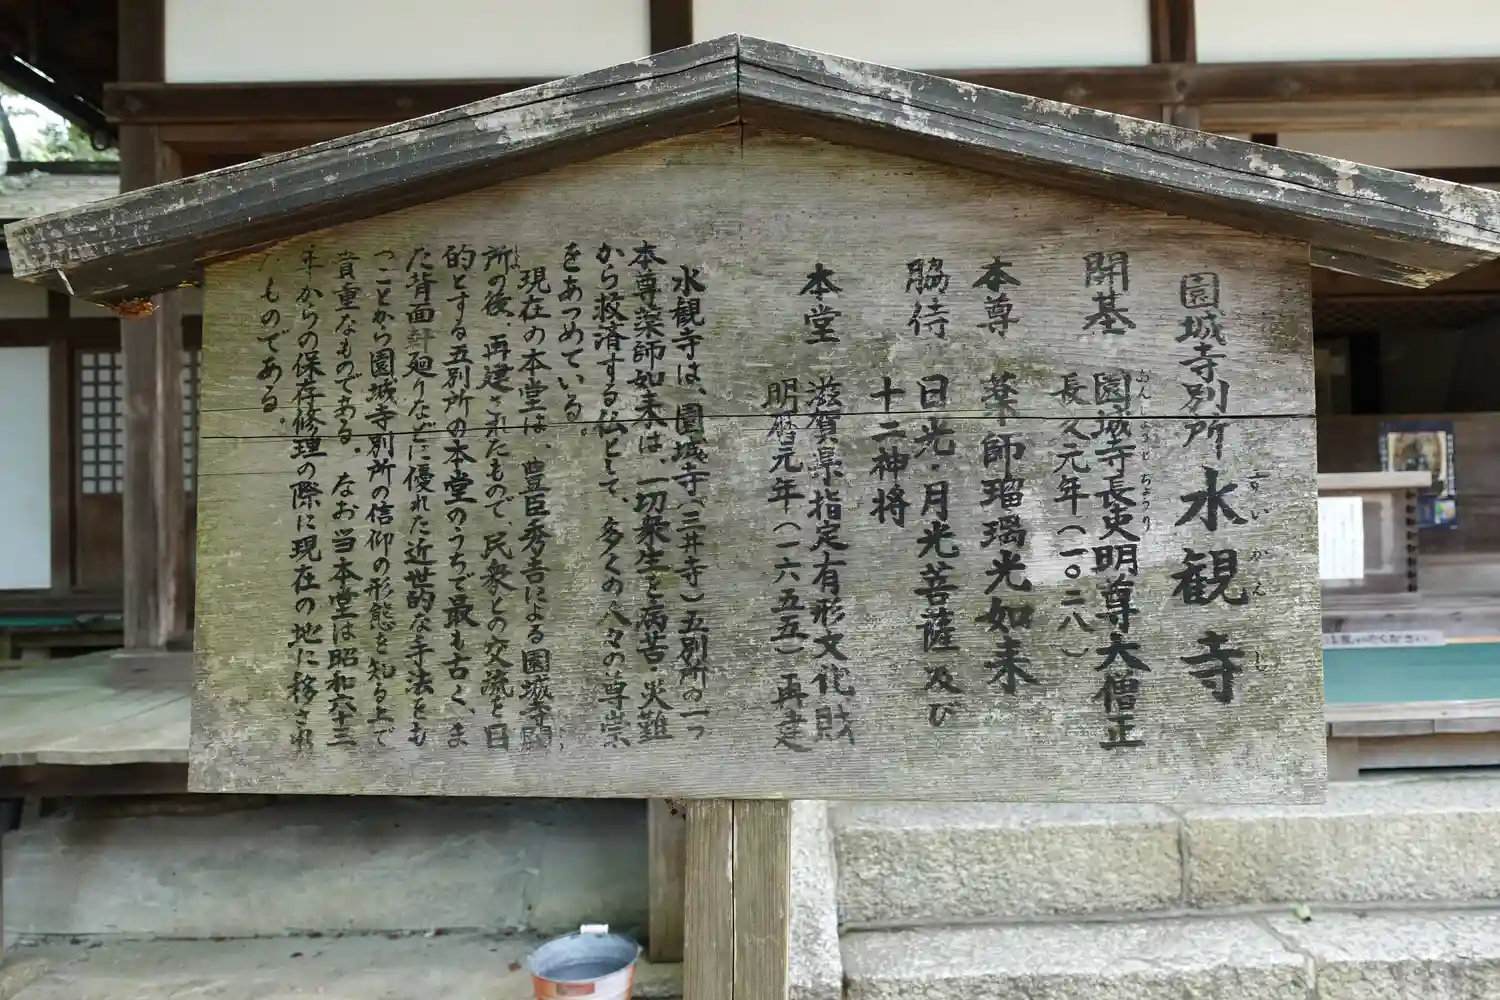 園城寺別所 水観寺
すい かん じ
開基 園城寺長吏明尊大僧正
おんじょうじ ちょうり
長久元年（一〇二八）
本尊 薬師瑠璃光如来
脇待 日光・月光菩薩 及び
十二神将
本堂 滋賀県指定有形文化財
明暦元年（一六五五）再建
水観寺は、園城寺（三井寺）五別所の一つ
本尊薬師如来は、一切衆生を病苦・災難
から救済する仏として、多くの人々の尊崇
をあつめている。
現在の本堂は、豊臣秀吉による園城寺闕
所の後、再建されたもので、民衆との交流を目
的とする五別所の本堂のうちで最も古く、ま
た背面軒廻りなどに優れた近世的な手法をも
つことから園城寺別所の信仰の形態を知る上で
貴重なものである。なお当本堂は昭和六十三
年からの保存修理の際に現在の地に移され
たものである。